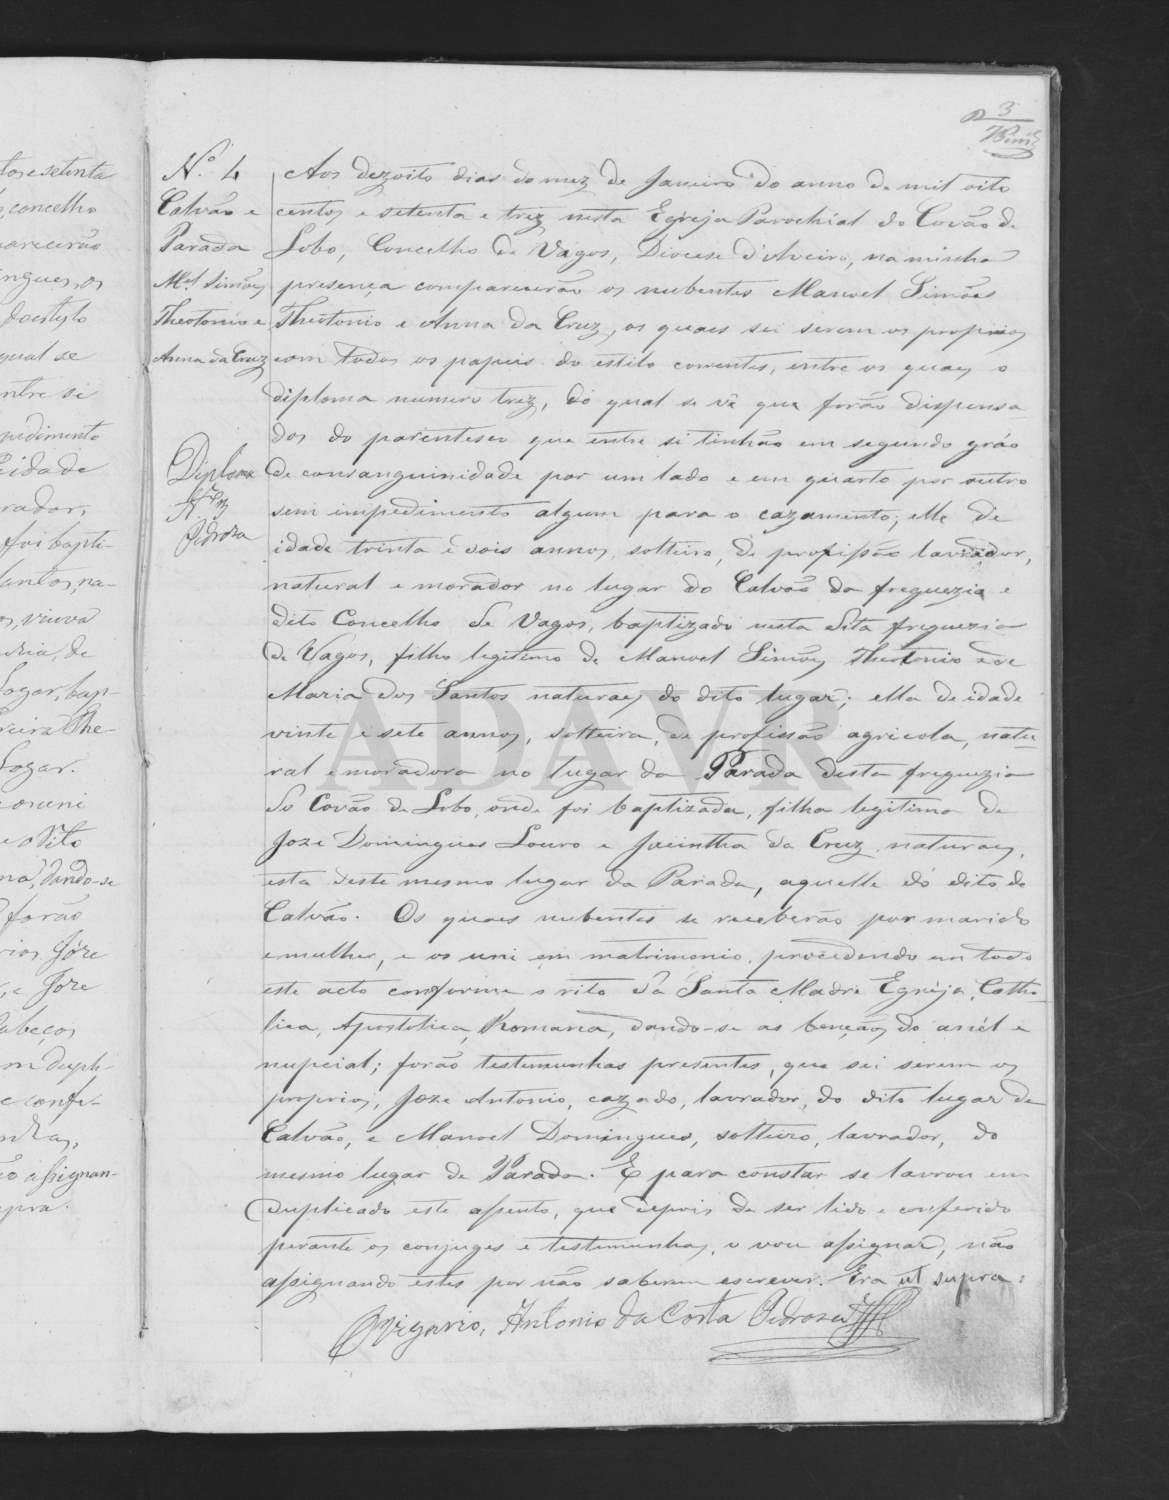 3
N.º 4
Calvão e
Parada
M.el Simões
Theotonio e
Anna da Cruz
Diploma
N.º 3
Pedrosa
Aos dezoito dias do mez de Janeiro do anno de mil oito
centos e setenta e trez nesta Egreja Parochial do Covão de
Lobo, Concelho de Vagos, Diocese d'Aveiro, na minha
presença comparecerão os nubentes Manoel Simões
Theotonio e Anna da Cruz, os quaes sei serem os proprios
com todos os papeis do estilo correntes, entre os quaes o
diploma numero trez, do qual se vê que forão dispensa
dos do parentesco que entre si tinhão em segundo gráo
de consanguinidade por um lado e em quarto por outro
sem impedimento algum para o cazamento; elle de
idade trinta e dois annos, solteiro, de profissão lavrador,
natural e morador no lugar do Calvão da freguezia e
dito Concelho de Vagos, baptizado nesta dita freguezia
de Vagos, filho legitimo de Manoel Simões Theotonio e de
Maria dos Santos naturaes do dito lugar; ella de idade
vinte e sete annos, solteira, de profissão agricola, natu-
ral e moradora no lugar da Parada desta freguezia
do Covão de Lobo, onde foi baptizada, filha legitima de
Joze Domingues Louro e Jacintha da Cruz naturaes,
esta deste mesmo lugar da Parada, aquelle dó dito de
Calvão. Os quaes nubentes se receberão por marido
e mulher, e os uni em matrimonio, procedendo em todo
este acto conforme o rito da Santa Madre Egreja, Catho-
lica, Apostolica, Romana, dando-se as benções do anél e
nupcial; forão testemunhas presentes, que sei serem os
proprios, Joze Antonio, cazado, lavrador, do dito lugar de
Calvão, e Manoel Domingues, solteiro, lavrador, do
mesmo lugar de Parada. E para constar se lavrou em
duplicado este assento, que depois de ser lido e conferido
perante os conjuges e testemunhas, o vou assignar, não
assignando estes por não saberem escrever. Era ut supra:
O Vigario, Antonio da Costa Pedrosa
tos e setenta
concelho
parecerão
ingues, os
do estylo
qual se
entre si
pedimento
cidade
rador,
foi bapti-
antos, na-
os, viuva
de
Logar, bap-
reira The-
Logar.
os uni
e o Rito
na, dando-se
forão
rios Józe
e Joze
Cabeços
m dupli-
e confe-
assignan-
supra.
ADAVR